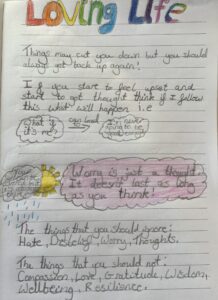 Loving Life
Things may cut you down but you should
always get back up again!
If you start to feel upset and
start to get thought think if I follow
this what will happen i.e
What if
it's me?
can lead
I'm never
going to be
good enough
Your
clouded but
Worry is just a thought.
It doesn't last as long
as you think!
The things that you should ignore:
Hate, Worry, Thoughts.
The things that you should not:
Compassion, Love, Gratitude, Wisdom,
Wellbeing, Resilience.